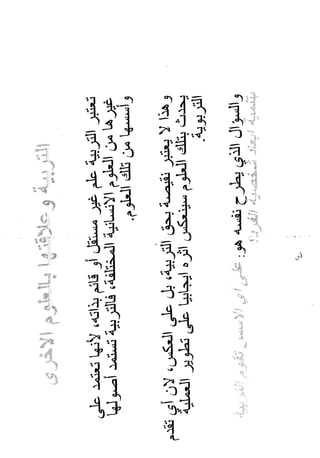 التربية وعلاقتها بالعلوم الاخرى
تعتبر التربية علم غير مستقل او قائم بذاته، لأنها تعتمد على
غيرها من العلوم الانسانية المختلفة، فالتربية تستمد أصولها
وأسسها من تلك العلوم.
وهذا لا يعتبر نقيصة بحق التربية، بل على العكس، لان أي تقدم
يحدث بتلك العلوم سينعكس اثره ايجابيا على تطوير العملية
التربوية.
والسؤال الذي يطرح نفسه هو: على أي الاسس تقوم التربية
شخصية الفرد؟!